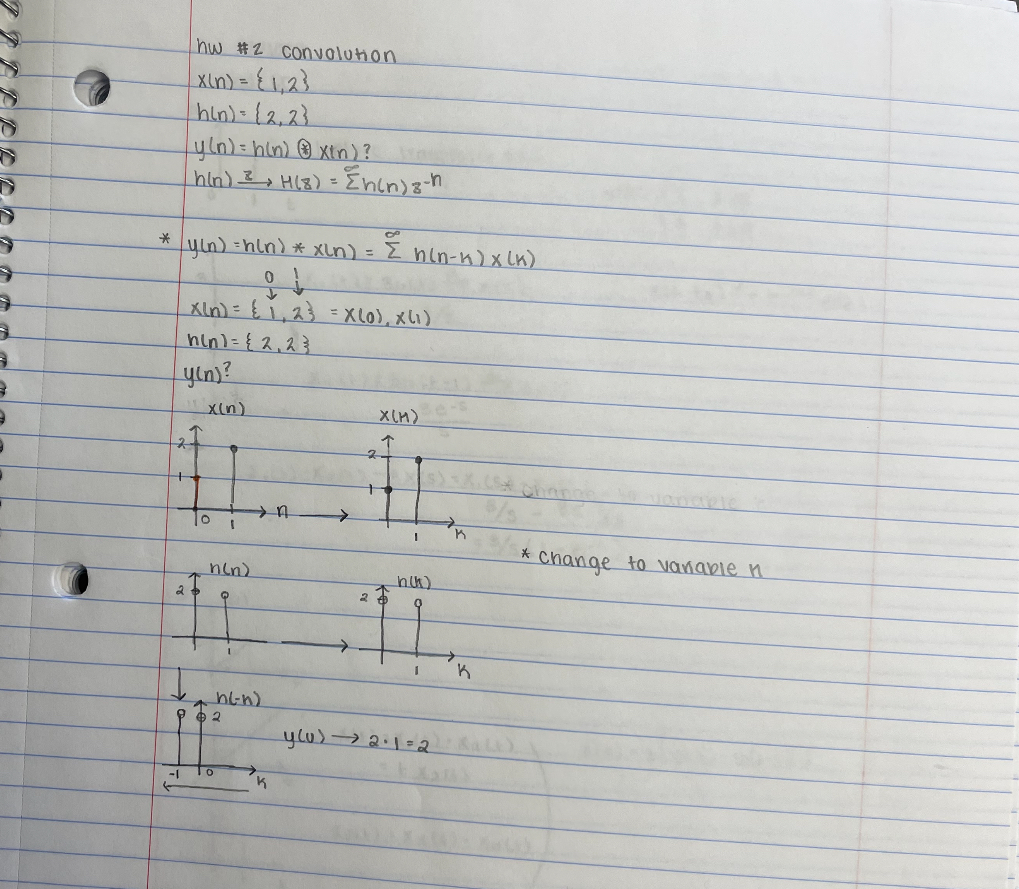 hw #2 convolution
x(n) = {1,2}
h(n) = {2,2}
y(n) = h(n) ⊛ x(n)?
h(n) z→ H(z) = ∞Σ h(n) z⁻ⁿ
* y(n) = h(n) * x(n) = ∞Σ h(n-k) x(k)
0 1
↓ ↓
x(n) = {1,2} = x(0), x(1)
h(n) = {2,2}
y(n)?
x(n) x(k)
2 2
1 1
0 1 → n → 1 k
* change to variable k
h(n) h(k)
2 2
1 → 1 k
↓ h(-k)
2
y(0) → 2·1=2
-1 0 k
←